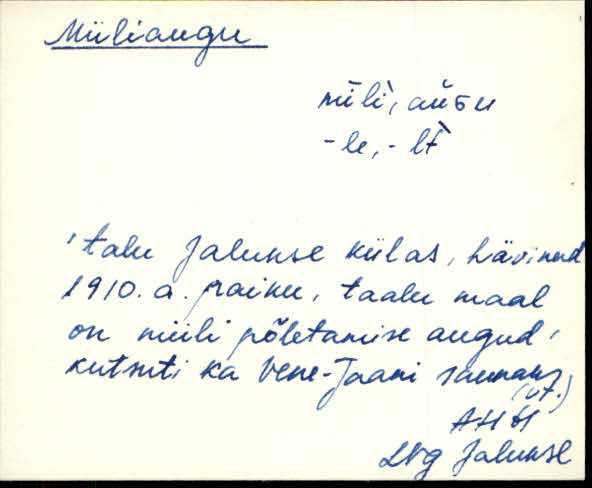 Miiliaugu
mīlì, aùgu
-le, -lt̀
'talu Jalukse külas, hävinend
1910. a. paiku, taalu maal
on miili põletamise augud,
kutsuti ka Vene-Jaani saunaks
(vt.)
AH 61
Lvg Jalukse